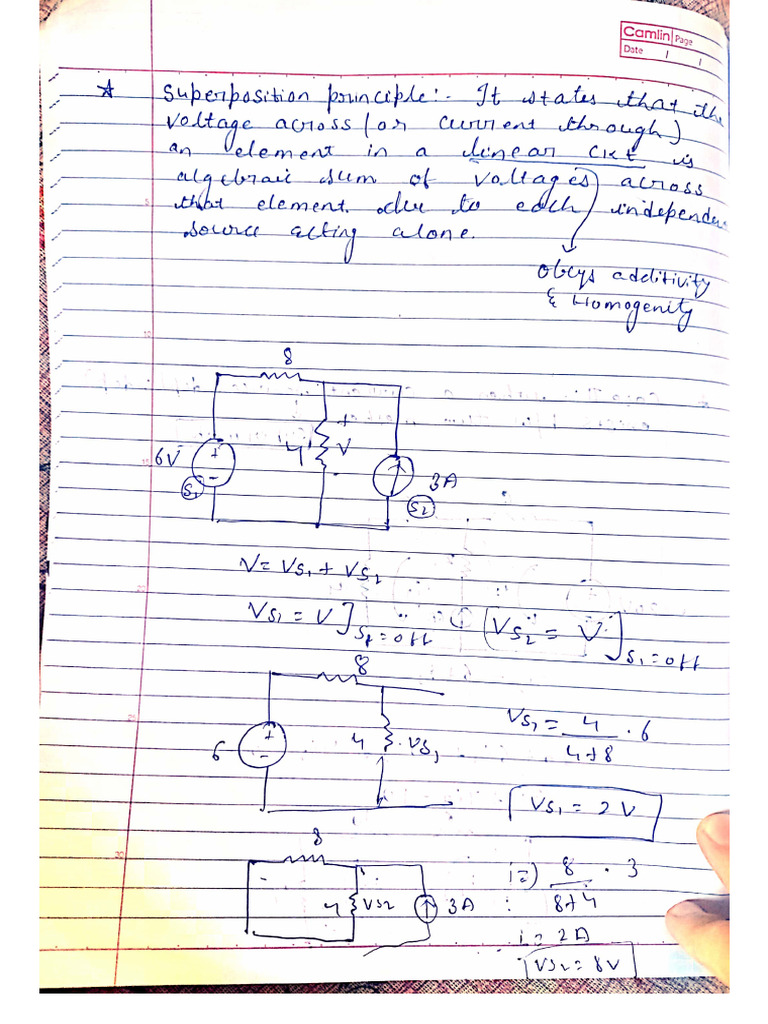 Camlin Page
Date / /
☆ Superposition principle:- It states that the
voltage across (or current through)
an element in a linear ckt is
algebraic sum of voltages across
that element due to each independen
source acting alone.
obeys additivity
& Homogenity
8
6V + - 4 + V - 3A
S1 S2
V = VS1 + VS2
VS1 = V]S2=off (VS2 = V]S1=off
8
6 + - 4 VS1
VS1 = 4/4+8 · 6
VS1 = 2V
8
4 VS2 3A
i=) 8/8+4 · 3
i = 2A
VS2 = 8V